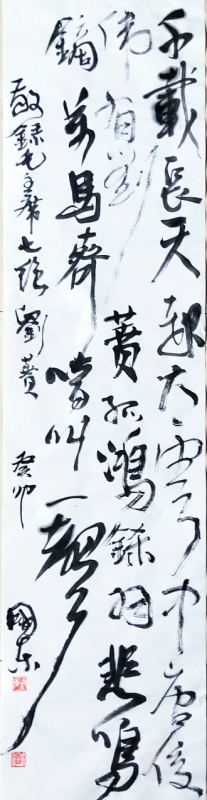 千載長天起大雲中唐俊
偉有劉蕡孤鴻鎩羽悲鳴
鏑萬馬齊喑叫一聲
敬録毛主席七絕劉蕡 癸卯
國东